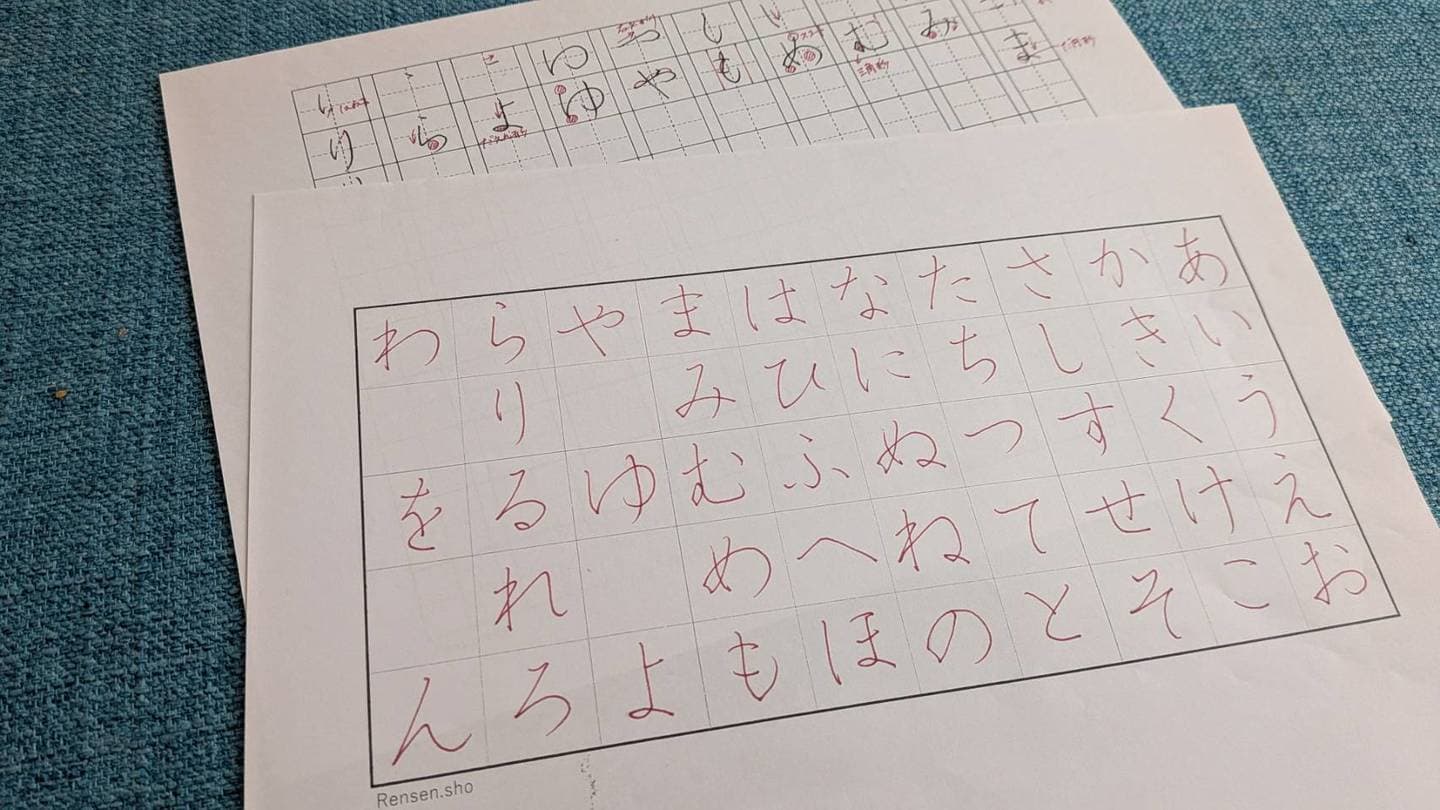 ま
み
む
三角形
め
し
も
や
ゆ
よ
ら
り
あいうえお
かきくけこ
さしすせそ
たちつてと
なにぬねの
はひふへほ
まみむめも
や ゆ よ
らりるれろ
わ を ん
Rensen.sho